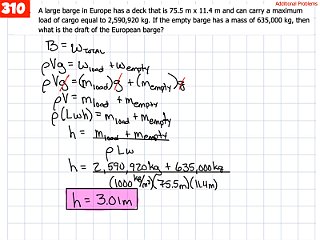 310
Additional Problems
A large barge in Europe has a deck that is 75.5 m x 11.4 m and can carry a maximum
load of cargo equal to 2,590,920 kg. If the empty barge has a mass of 635,000 kg, then
what is the draft of the European barge?
B = W_TOTAL
ρVg = W_load + W_empty
ρVg = (m_load)g + (m_empty)g
ρV = m_load + m_empty
ρ(Lwh) = m_load + m_empty
h = m_load + m_empty
ρLw
h = 2,590,920kg + 635,000kg
(1000 kg/m³)(75.5m)(11.4m)
h = 3.01m